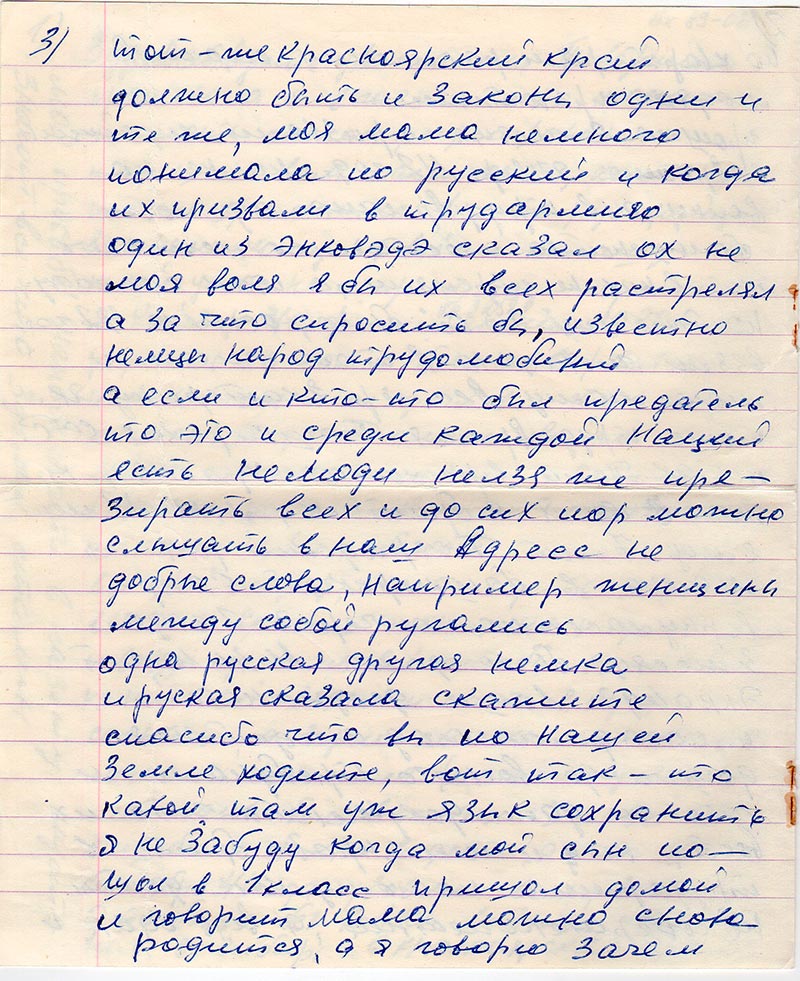 3/ тот-же Красноярский край
должно быть и Законы одни и
те же, моя мама немного
понимала по русский и когда
их призвали в трудармию
один из энковэдэ сказал ох не
моя воля я бы их всех растрелял
а за что спросить бы, известно
немцы народ трудолюбивый
а если и кто-то был предатель
то это и среди каждой Нацкий
есть нелюди нелзя же пре-
зирать всех и до сих пор можно
слышать в наш Адресс не
добрые слова, например женщины
между собой ругались
одна русская другая немка
и руская сказала скажите
спасибо что вы по Нашей
Земле ходите, вот так-то
какой там уж язык сохранить
я не Забуду когда мой сын по-
шол в 1 класс пришол домой
и говорит мама можно снова
родится, а я говорю зачем